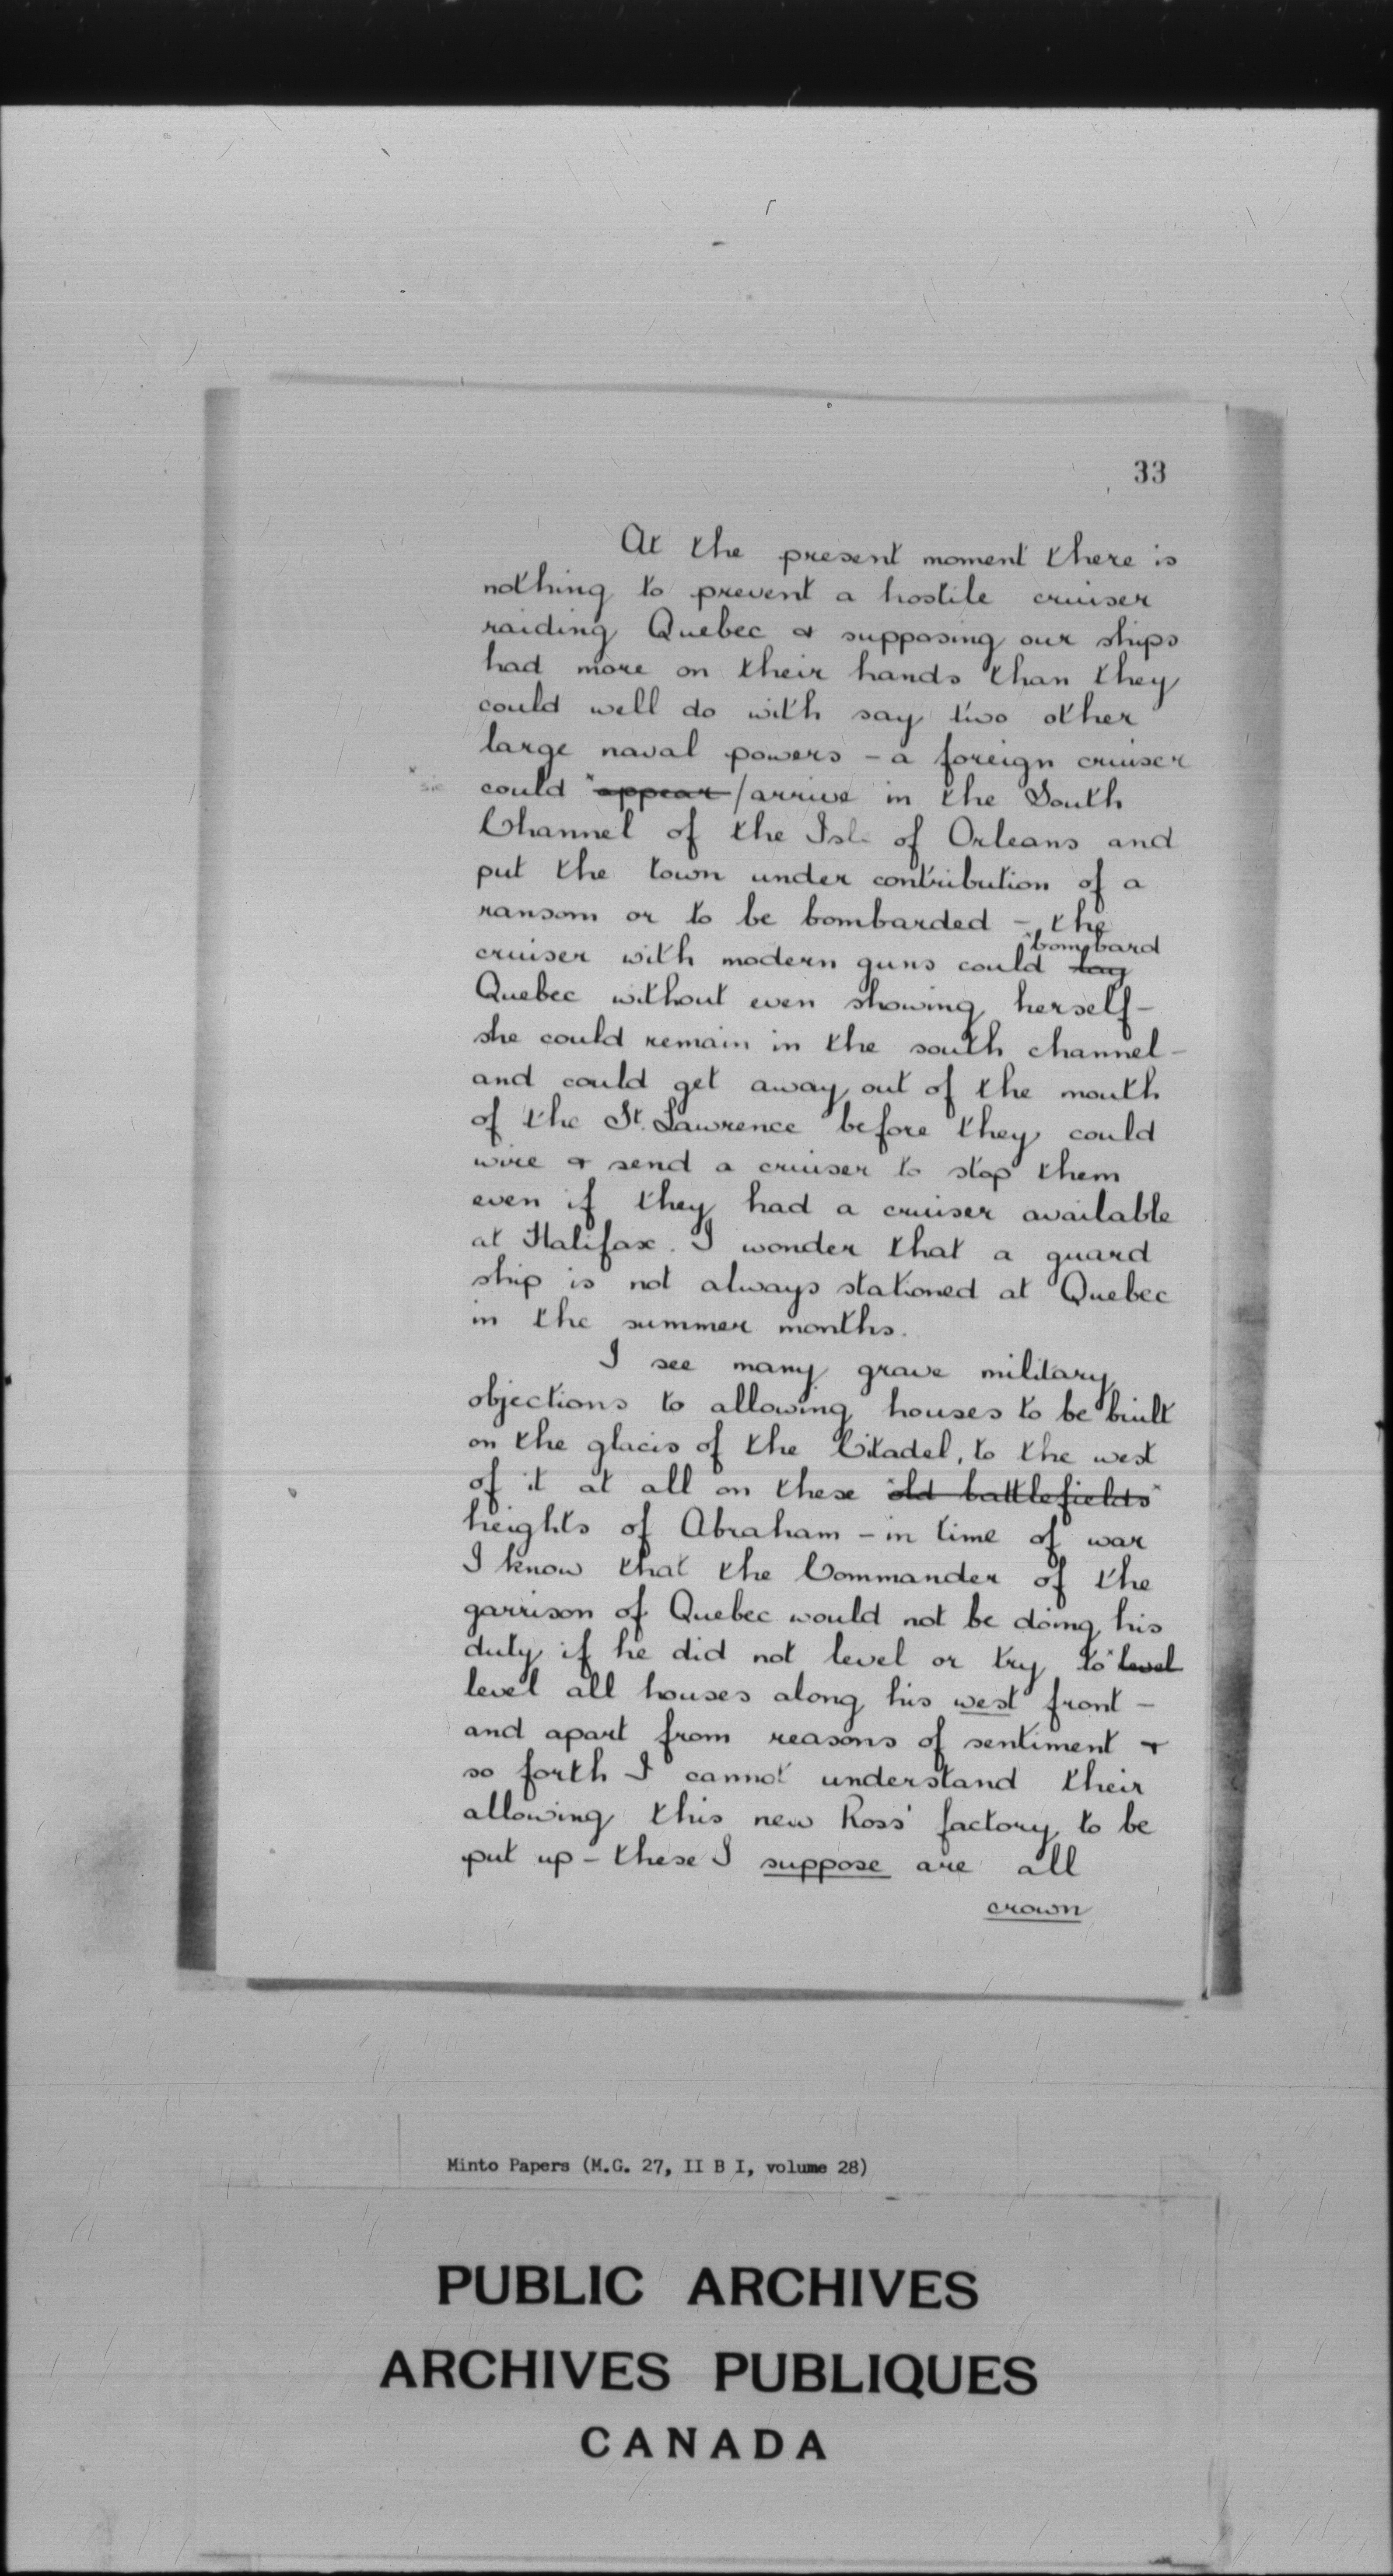 33
At the present moment there is
nothing to prevent a hostile cruiser
raiding Quebec & supposing our ships
had more on their hands than they
could well do with say two other
large naval powers – a foreign cruiser
x sic could x appear / arrive in the South
Channel of the Isle of Orleans and
put the town under contribution of a
ransom or to be bombarded – the
x bombard
cruiser with modern guns could lay
Quebec without even showing herself –
she could remain in the south channel –
and could get away out of the mouth
of the St. Lawrence before they could
wire & send a cruiser to stop them
even if they had a cruiser available
at Halifax. I wonder that a guard
ship is not always stationed at Quebec
in the summer months.
I see many grave military
objections to allowing houses to be built
on the glacis of the Citadel, to the west
of it at all on these x old battlefields x
heights of Abraham – in time of war
I know that the Commander of the
garrison of Quebec would not be doing his
duty if he did not level or try to x level
level all houses along his west front –
and apart from reasons of sentiment &
so forth I cannot understand their
allowing this new Ross' factory to be
put up – these I suppose are all
crown
Minto Papers (M.G. 27, II B I, volume 28)
PUBLIC ARCHIVES
ARCHIVES PUBLIQUES
CANADA